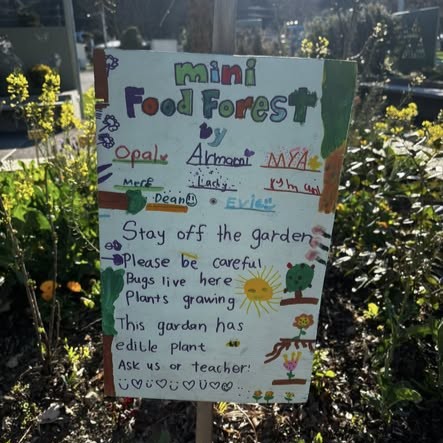 mini
Food Forest
by
Opal Armani MYA
Merf Lady
Dean Evie
Stay off the garden
Please be careful
Bugs live here
Plants growing
This gardan has
edible plant
Ask us or teacher: